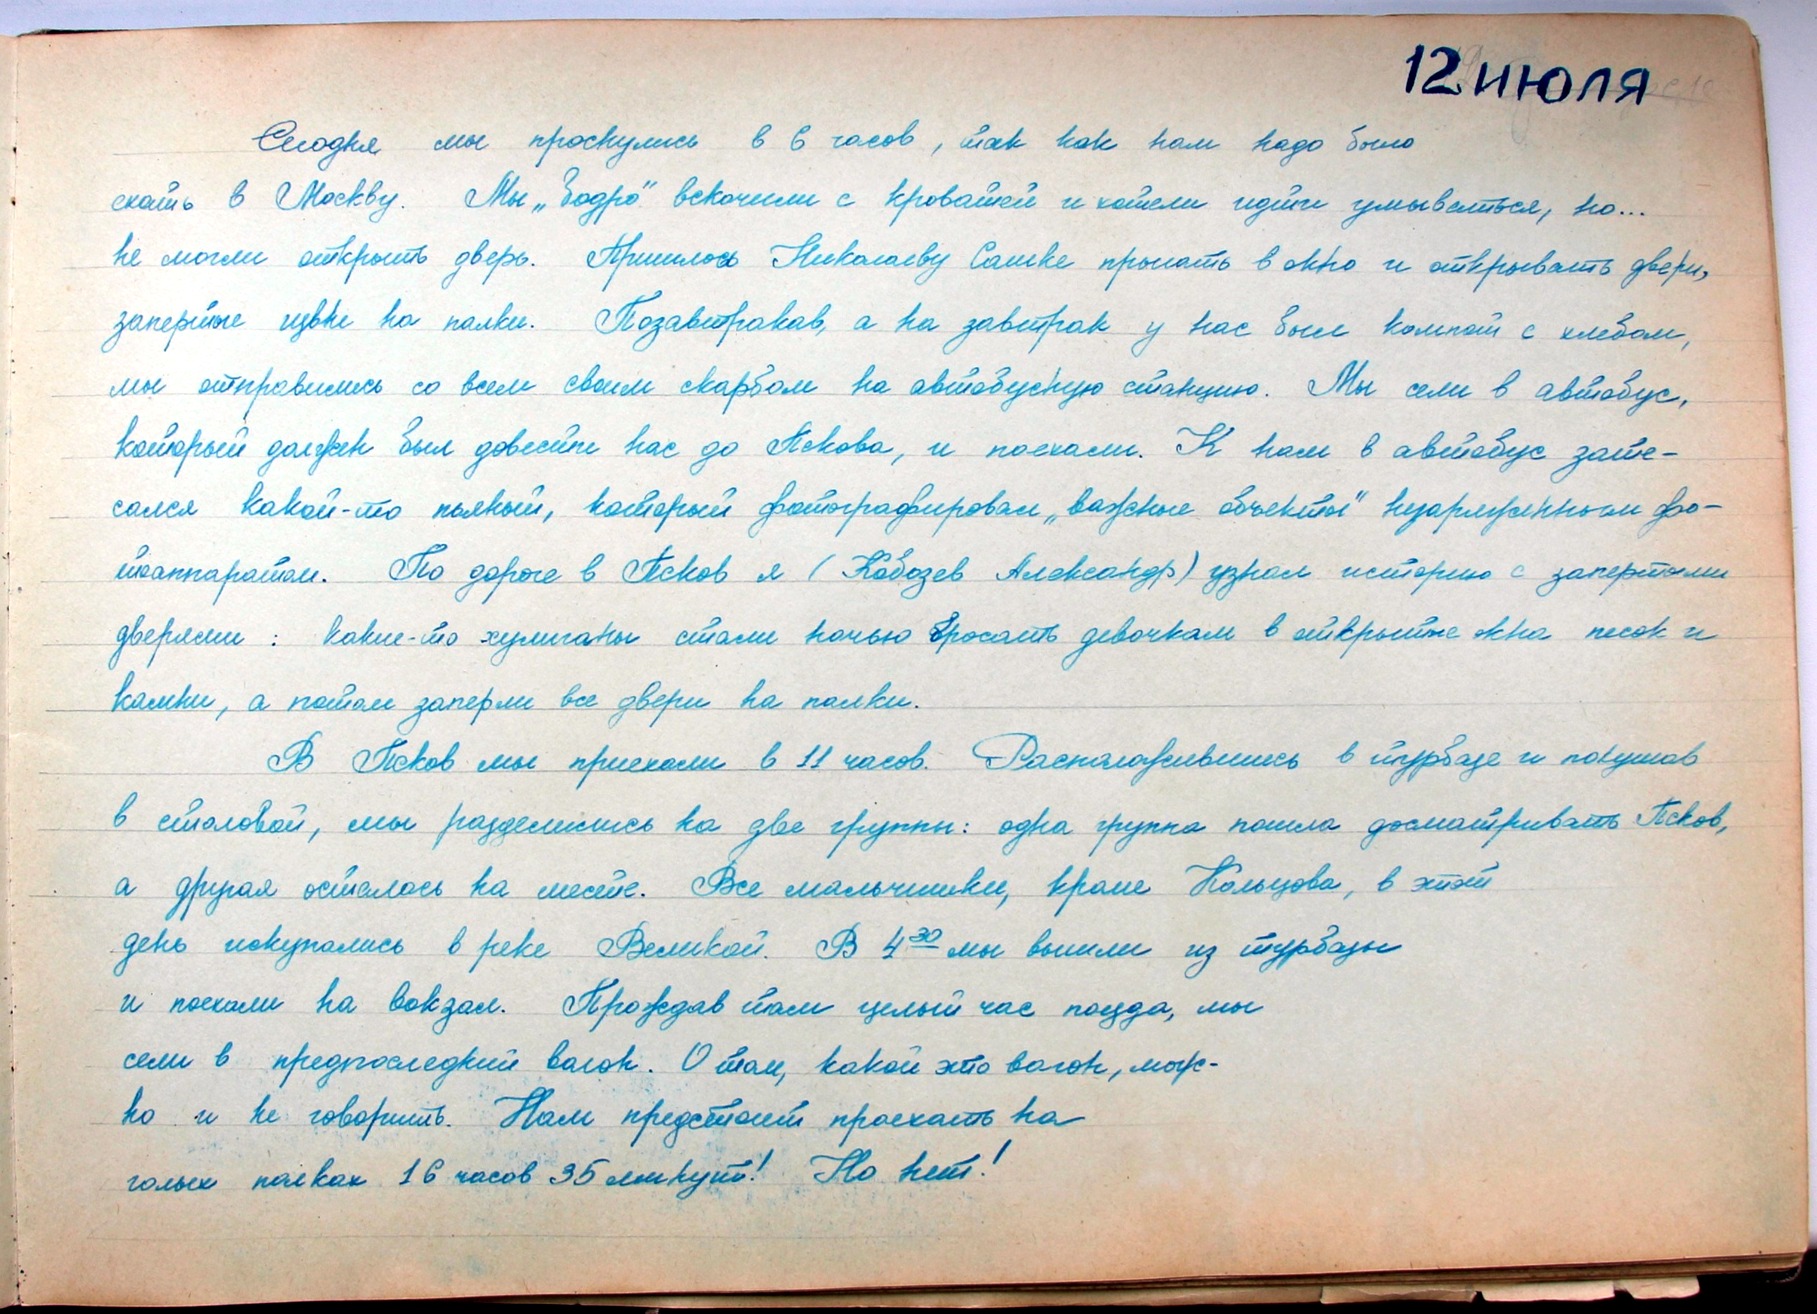 12 июля
Сегодня мы проснулись в 6 часов, так как нам надо было
ехать в Москву. Мы „бодро" вскочили с кроватей и хотели идти умываться, но...
не могли открыть дверь. Пришлось Николаеву Сашке прыгать в окно и открывать двери,
запертые извне на палки. Позавтракав, а на завтрак у нас был компот с хлебом,
мы отправились со всем своим скарбом на автобусную станцию. Мы сели в автобус,
который должен был довезти нас до Пскова, и поехали. К нам в автобус зате-
сался какой-то пьяный, который фотографировал „важные объекты" незаряженным фо-
тоаппаратом. По дороге в Псков я (Кобозев Александр) узнал историю с запертыми
дверями: какие-то хулиганы стали ночью бросать девочкам в открытые окна песок и
камни, а потом заперли все двери на палки.
В Псков мы приехали в 11 часов. Расположившись в турбазе и покушав
в столовой, мы разделились на две группы: одна группа пошла досматривать Псков,
а другая осталась на месте. Все мальчишки, кроме Кольцова, в этот
день искупались в реке Великой. В 4 30 мы вышли из турбазы
и поехали на вокзал. Прождав там целый час поезда, мы
сели в предпоследний вагон. О том, какой это вагон, мож-
но и не говорить. Нам предстоит проехать на
голых полках 16 часов 35 минут! Но нет!